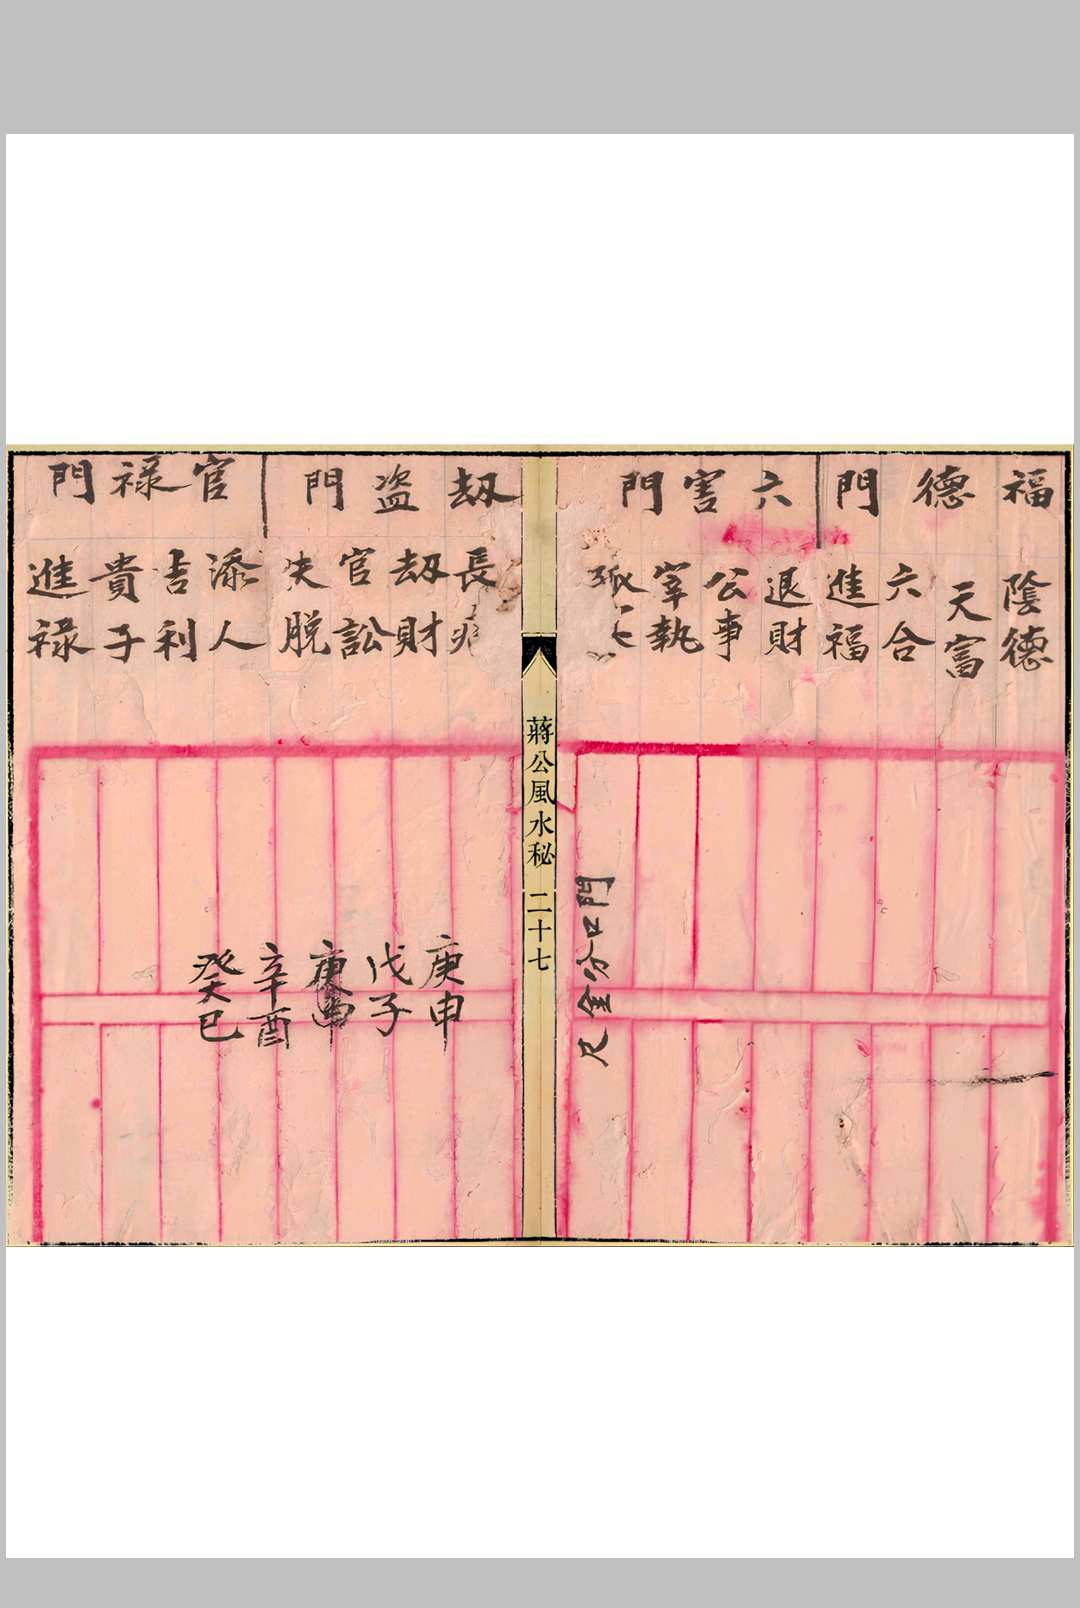 福德門
六害門
陰德
天富
六合
進福
退財
公事
宰執
孤
門口分金尺
蔣公風水秘 二十七
劫盜門
官祿門
長
劫財
官訟
失脫
添人
吉利
貴子
進祿
庚申
戊子
庚申
辛酉
癸巳